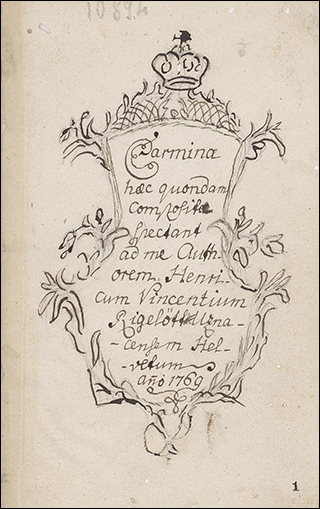 10894
Carmina
hæc quondam
composita
spectant
ad me Auth-
orem Henri-
cum Vincentium
-censem Hel-
-vetum
año 1769
1